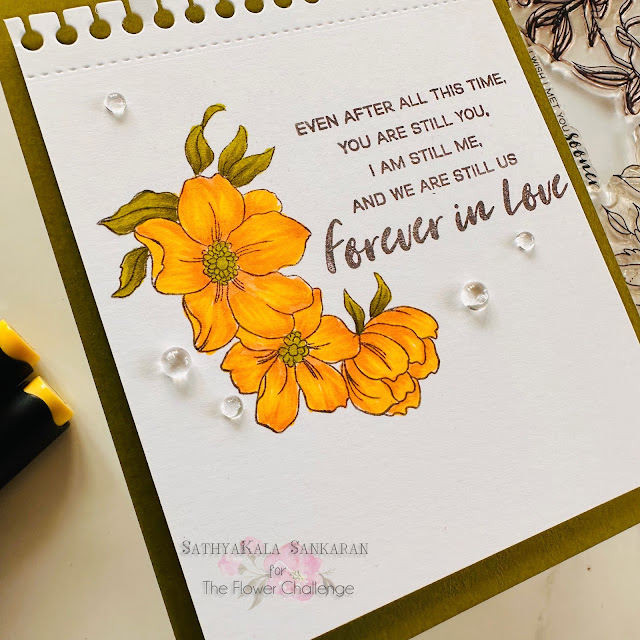 EVEN AFTER ALL THIS TIME,
YOU ARE STILL YOU,
I AM STILL ME,
AND WE ARE STILL US
forever in love
I WISH I MET YOU
sooner
SATHYAKALA SANKARAN
for
The Flower Challenge